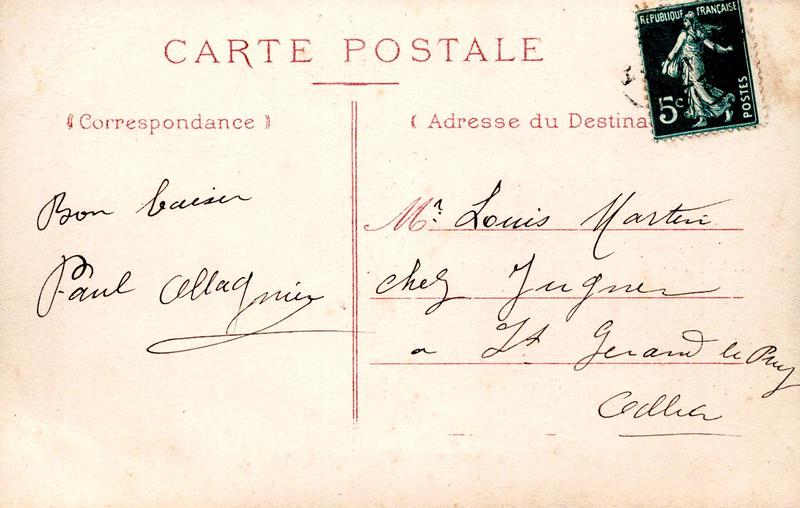 CARTE POSTALE
RÉPUBLIQUE FRANÇAISE
5c
POSTES
Correspondance
Adresse du Destina
Bon baiser
Paul Allagnier
Mr. Louis Martin
chez Jugner
a St Gerand le Puy
Allier